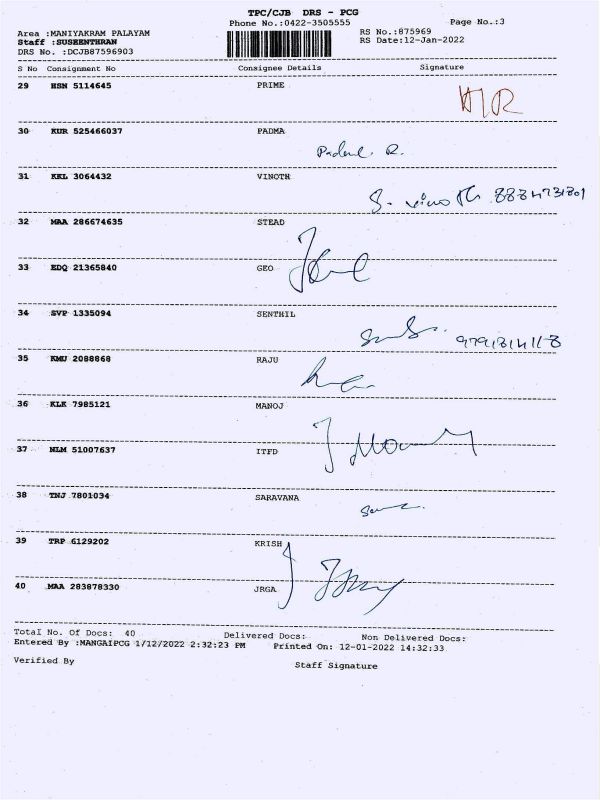 TPC/CJB DRS - PCG
Phone No.:0422-3505555 Page No.:3
Area :MANIYAKRAM PALAYAM RS No.:875969
Staff :SUSHENTHRAN RS Date:12-Jan-2022
DRS No. :DCJB87596903
S No Consignment No Consignee Details Signature
29 HSN 5114645 PRIME
30 KUR 525466037 PADMA
31 KKL 3064432 VINOTH
S. Vinoth
32 MAA 286674635 STEAD
33 EDQ 21365840 GEO
34 SVP 1335094 SENTHIL
35 KMU 2088868 RAJU
36 KLK 7985121 MANOJ
37 NLM 51007637 ITFD
38 TNJ 7801034 SARAVANA
39 TRP 6129202 KRISH
40 MAA 283878330 JRGA
Total No. Of Docs: 40 Delivered Docs: Non Delivered Docs:
Entered By :MANGAIPCG 1/12/2022 2:32:23 PM Printed On: 12-01-2022 14:32:33
Verified By Staff Signature